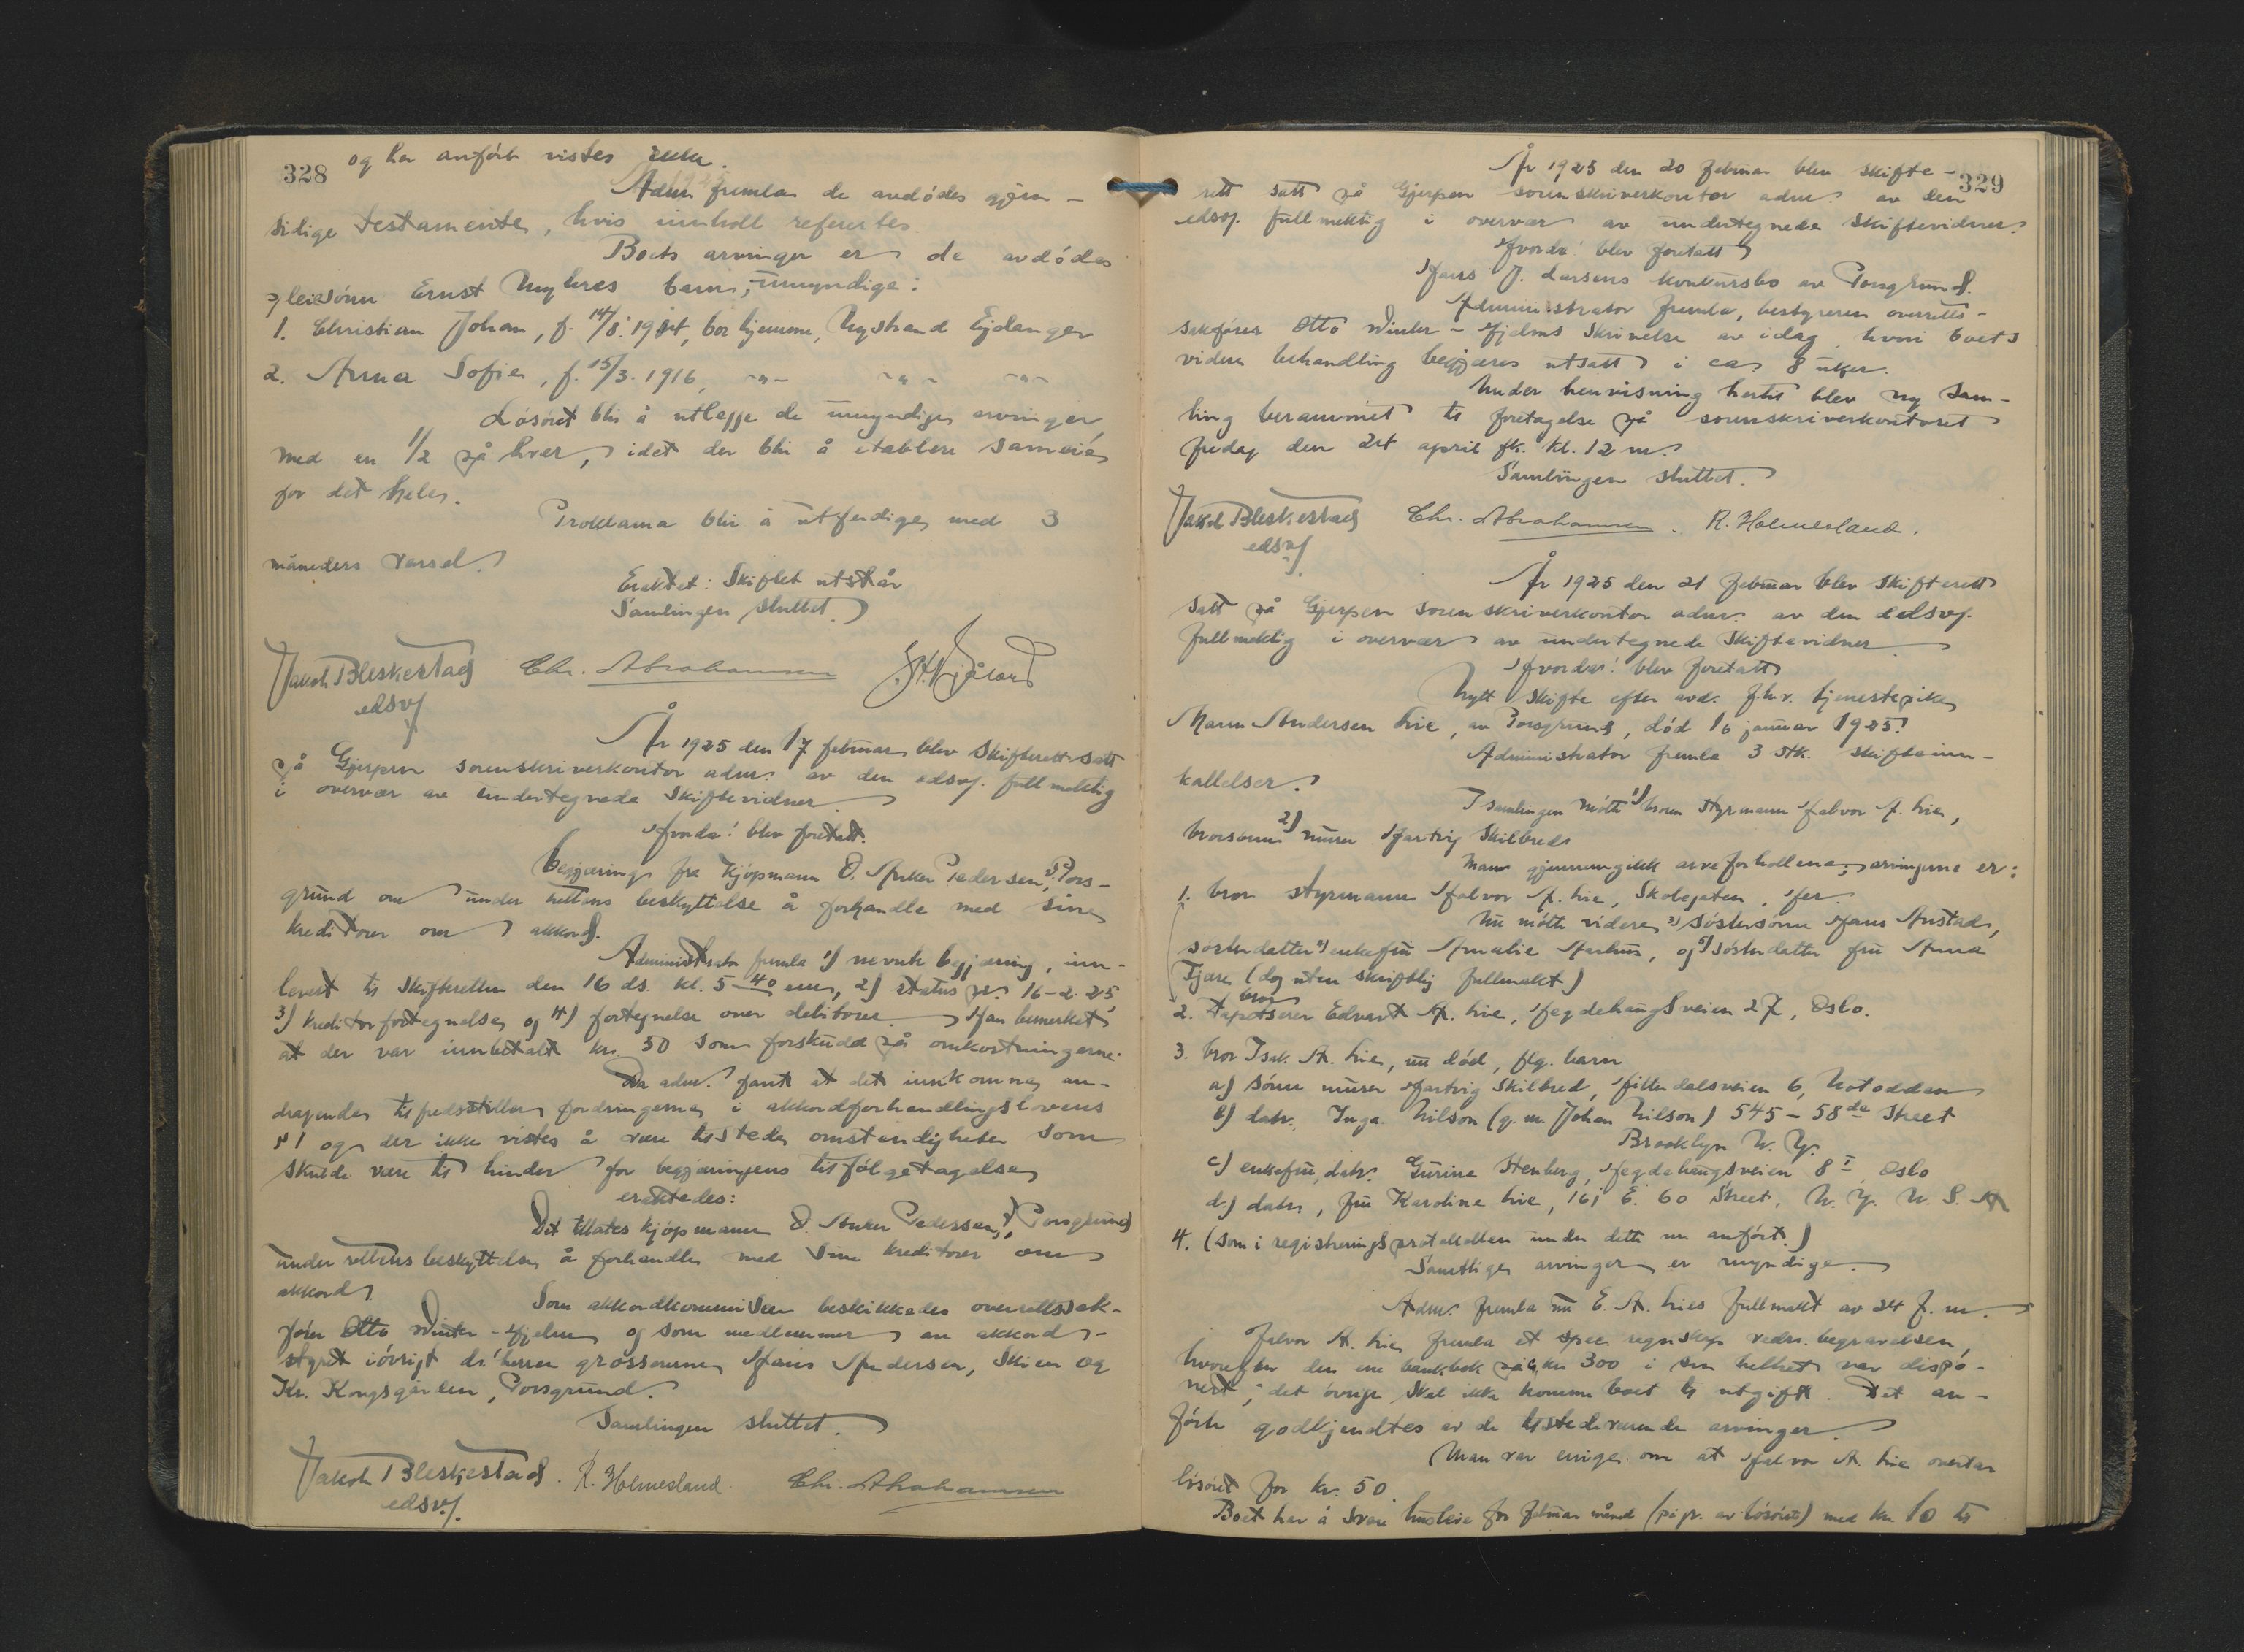 328
og her anført vistes ikke.
Adm. fremla de avdødes gjen-
sidige testamente, hvis innholl refertes.
Boets arvinger er de avdødes
pleiesønn Ernst Nyhres barn, umyndige:
1. Christian Johan, f. 14/8. 1914, bor hjemme, Nystrand Eidanger
2. Anna Sofie, f. 15/3. 1916, -"- -"- -"-
Løsøret blir å utlegge de umyndige arvinger
med en 1/2 på hver, idet der blir å etablere sameie
for det hele.
Proklama blir å utferdige med 3
måneders varsel.
Eraktet: Skiftet utstår
Samlingen sluttet.
Jakob Bleskestad Chr. Abrahamsen
edsvf.
År 1925 den 17 februar blev skifterett satt
på Gjerpen sorenskriverkontor adm. av den edsvf. fullmektig
i overvær av undertegnede skiftevidner.
Hvorda! blev foretatt.
Begjæring fra kjøpmann O. Anker Pedersen, Pors-
grund om under rettens beskyttelse å forhandle med sine
kreditorer om akkord.
Administrator fremla 1) nevnte begjæring, inn-
levert til skifteretten den 16 ds. kl. 5 40 em, 2) status pr. 16-2-25
3) kreditorfortegnelse og 4) fortegnelse over debitorer. Han bemerket
at der var innbetalt kr. 50 som forskudd på omkostningerne.
Da adm. fant at det innkomne an-
dragende tilfredsstiller fordringerne i akkordforhandlingslovens
§ 1 og der ikke vistes å være tilstede omstendigheter som
skulde være til hinder for begjæringens tilfølgetagelse
eraktedes:
Det tillates kjøpmann O. Anker Pedersen, Porsgrund
under rettens beskyttelse å forhandle med sine kreditorer om
akkord.
Som akkordkommisær beskikkedes overrettssak-
fører Otto Winter-Hjelm og som medlemmer av akkord-
styret iøvrigt d'herrer grossererne Hans Andersen, Skien og
Kr. Kongsgården, Porsgrund.
Samlingen sluttet.
Jakob Bleskestad. R. Holmesland. Chr. Abrahamsen
edsvf.
329
År 1925 den 20 februar blev skifte-
rett satt på Gjerpen sorenskriverkontor adm. av den
edsvf. fullmektig i overvær av undertegnede skiftevidner.
Hvorda! blev foretatt
Hans J. Larsens konkursbo av Porsgrund.
Administrator fremla, bestyreren overretts-
sakfører Otto Winter-Hjelms skrivelse av idag, hvori boets
videre behandling begjæres utsatt i ca. 8 uker.
Under henvisning hertil blev ny sam-
ling berammet til foretagelse på sorenskriverkontoret
fredag den 24 april fk. kl. 12 m.
Samlingen sluttet.
Jakob Bleskestad Chr. Abrahamsen. R. Holmesland.
edsvf.
År 1925 den 21 februar blev skifterett
satt på Gjerpen sorenskriverkontor adm. av den edsvf.
fullmektig i overvær av undertegnede skiftevidner.
Hvorda! blev foretatt
Nytt skifte efter avd. f.h.v. tjenestepike
Maren Andersen Lie, av Porsgrund, død 16 januar 1925.
Administrator fremla 3 stk. skifteinn-
kallelser.
I samlingen møtte 1) broren styrmann Halvor A. Lie,
brorsønn 2) murer Hartvig Skilbred
Man gjennemgikk arveforhollene; arvingerne er:
1. bror styrmann Halvor A. Lie, Skolegaten, her.
Nu møtte videre 3) søstersønn Hans Austad,
søsterdatter 4) enkefru Amalie Aarhus, og 5) søsterdatter fru Anna
Tjære (dog uten skriftlig fullmakt)
2. bror Tapetserer Edvart A. Lie, Hegdehaugsveien 27, Oslo.
3. bror Isak A. Lie, nu død, flg. barn
a) sønn murer Hartvig Skilbred, Hitterdalsveien 6, Notodden
b) datr. Inga Nilson (g. m. Johan Nilson) 545 - 58de Street
Brooklyn N. Y.
c) enkefru, datr. Gurine Stenberg, Hegdehaugsveien 8 I Oslo
d) datr, fru Karoline Lie, 161 E. 60 Street, N. Y. U. S. A
4. (som i registreringsprotokollen under dette nr anført.)
Samtlige arvinger er myndige.
Adm. fremla nu E. A. Lies fullmakt av 24 f. m.
Halvor A. Lie fremla et spec. regnskap vedr. begravelsen,
hvorefter den ene bankbok på kr 300 i sin helhet var dispo-
nert; det øvrige skal ikke komme boet til utgift. Det an-
førte godkjendtes av de tilstedeværende arvinger.
Man var enige om at Halvor A. Lie overtar
løsøret for kr. 50.
Boet har å svare husleie for februar måned (på gr. av løsøret) med kr. 10 til